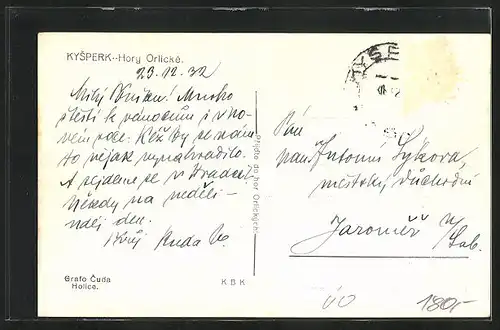 KYŠPERK--Hory Orlické.
23.12.32
Milý! Mnoho
štěstí k vánocům i v no-
vém roce. Kéž by se nám
to nějak vynahradilo.
A sejdeme se v Hradci
někdy na neděli-
den.
Ruda
Grafo Čuda
Holice.
Přijďte do hor Orlických!
K B K
Pán
pan Antonín Sýkora,
městský důchodní
Jaroměř n/
Lab.
180,-